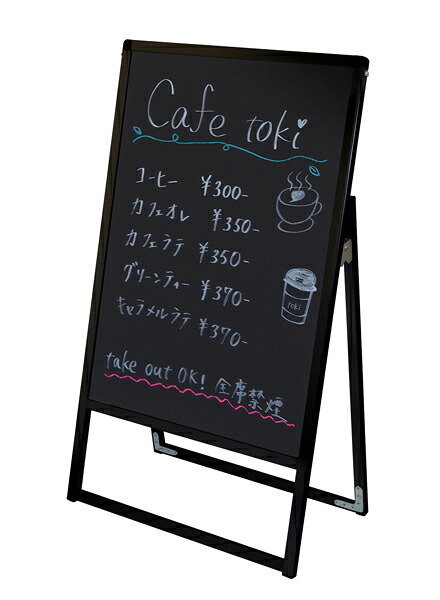 Cafe toki
コーヒー ¥300-
カフェオレ ¥350-
カフェラテ ¥350-
グリーンティー ¥370-
キャラメルラテ ¥370-
toki
take out OK! 全席禁煙